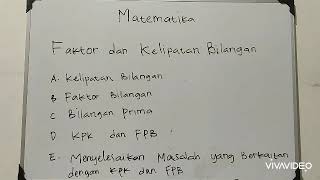 Matematika
Faktor dan Kelipatan Bilangan
A. Kelipatan Bilangan
B Faktor Bilangan
C Bilangan Prima
D KPK dan FPB
E. Menyelesaikan Masalah yang Berkaitan
dengan KPK dan FPB
VIVAVIDEO